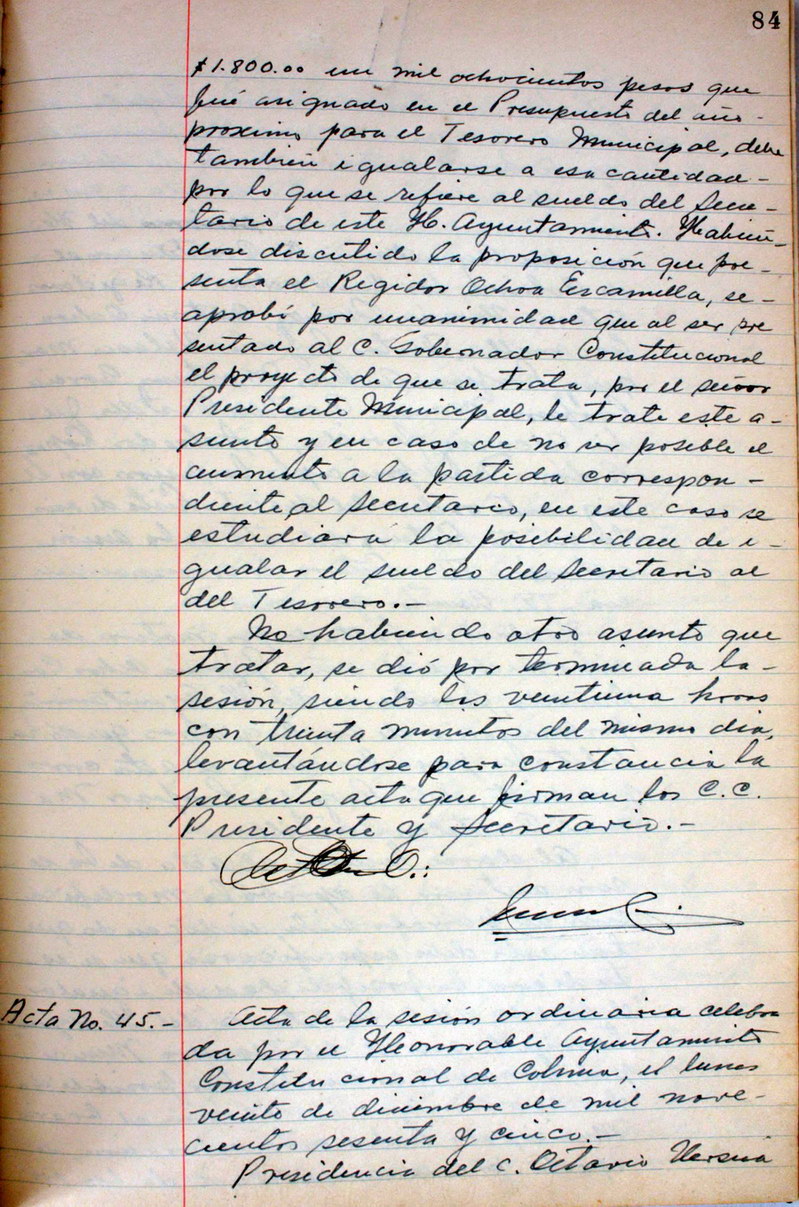 84
$1.800.00 un mil ochocientos pesos que
fué asignado en el Presupuesto del año-
proximo para el Tesorero Municipal, debe
también igualarse a esa cantidad-
por lo que se refiere al sueldo del Secre-
tario de este H. Ayuntamiento. Habién-
dose discutido la proposición que pre-
senta el Regidor Ochoa Escamilla, se-
aprobó por unanimidad que al ser pre
sentado al C. Gobernador Constitucional
el proyecto de que se trata, por el señor
Presidente Municipal, le trate este a-
sunto y en caso de no ser posible el
aumento a la partida correspon-
diente al Secretario, en este caso se
estudiará la posibilidad de i-
gualar el sueldo del Secretario al
del Tesorero.-
No habiendo otro asunto que
tratar, se dió por terminada la-
sesión, siendo las veintiuna horas
con treinta minutos del mismo dia,
levantándose para constancia la
presente acta que firman los C.C.
Presidente y Secretario.-
Acta No. 45.-
Acta de la sesión ordinaria celebra
da por el Honorable Ayuntamiento
Constitucional de Colima, el lunes
veinte de diciembre de mil nove-
cientos sesenta y cinco.-
Presidencia del C. Octavio